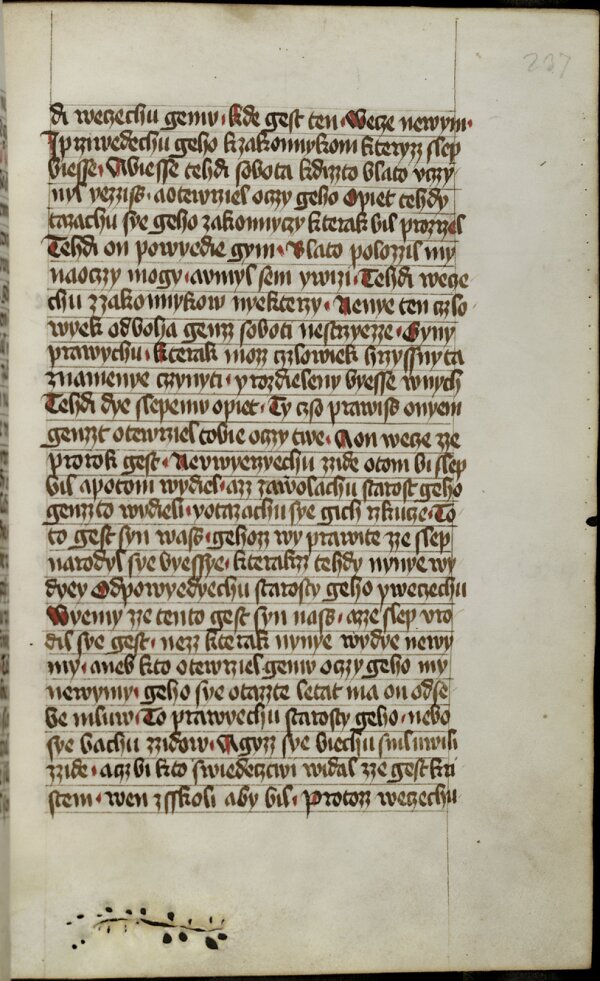 237
di weczechu gemv · kde gest ten · Wecze newym ·
I prziwedechu geho kzakonnykom kteryz slep
biesse · Abiesse tehdi sobota kdizto blato vczy
nyl yezziss · aotewrziel oczy geho Opiet tehdy
tazachu sye geho zakonnyczy kterak bil prozrzel
Tehdi on powyedie gym · Blato polozzil my
naoczy mogy · avmyl sem ywizi · Tehdi wecze
chu zzakonnykow nyekterzy · Nenye ten czlo
wyek odboha genz soboti nestrzyezze · Gyny
prawychu · kterak moz czlowiek hrzyssny ta
znamenye czynyti · y rozdieleny byesse wnych
Tehdi dye slepemv opiet · Ty czso prawiss onyem
genzt otewrziel tobie oczy twe · Aon wecze ze
prorok gest · Nevwyerzyechu zzide otom bi slep
bil apotom wydiel · azz zawolachu starost geho
genz to wydieli · yotazachu sye gich rzkucze · To
to gest syn wass · gehozz wy prawite zze slep
narodyl sye byessye · kterakz tehdy nynye wy
dyey Odpowyedyechu starosty geho yweczechu
Wyemy zze tento gest syn nass · azze slep vro
dil sye gest · nezz kterak nynye wydye newy
my · aneb kto otewrziel gemv oczy geho my
newymy · geho sye otazzte letat ma on odse
be mluw · To prawyechu starosty geho · nebo
sye bachu zzidow · Agyzz sye biechu smluwili
zzide · aczbi kto swiedecztwi widal zze gest kri
stem · wen zsskoli aby bil · Protozz weczechu